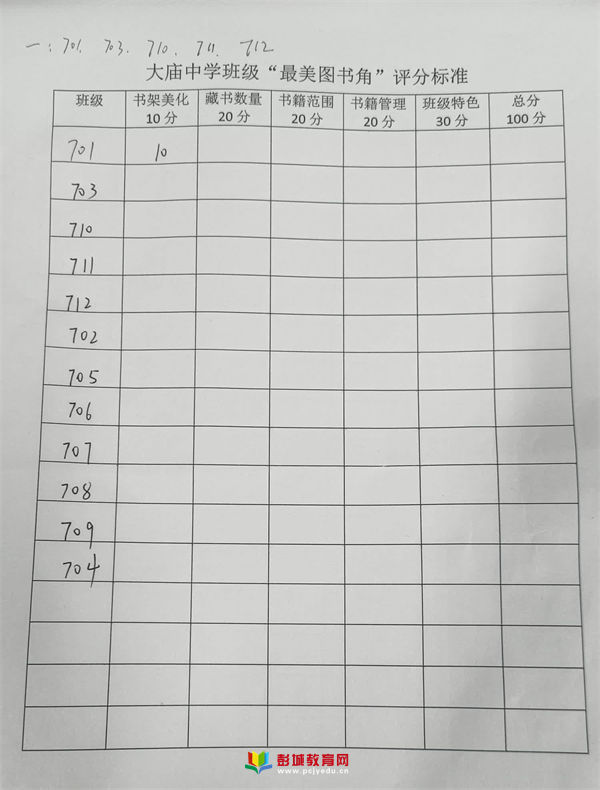 一: 701. 703. 710. 711. 712
大庙中学班级“最美图书角”评分标准
班级 书架美化 藏书数量 书籍范围 书籍管理 班级特色 总分
10 分 20 分 20 分 20 分 30 分 100 分
701 10
703
710
711
712
702
705
706
707
708
709
704
彭城教育网
www.pcjyedu.cn